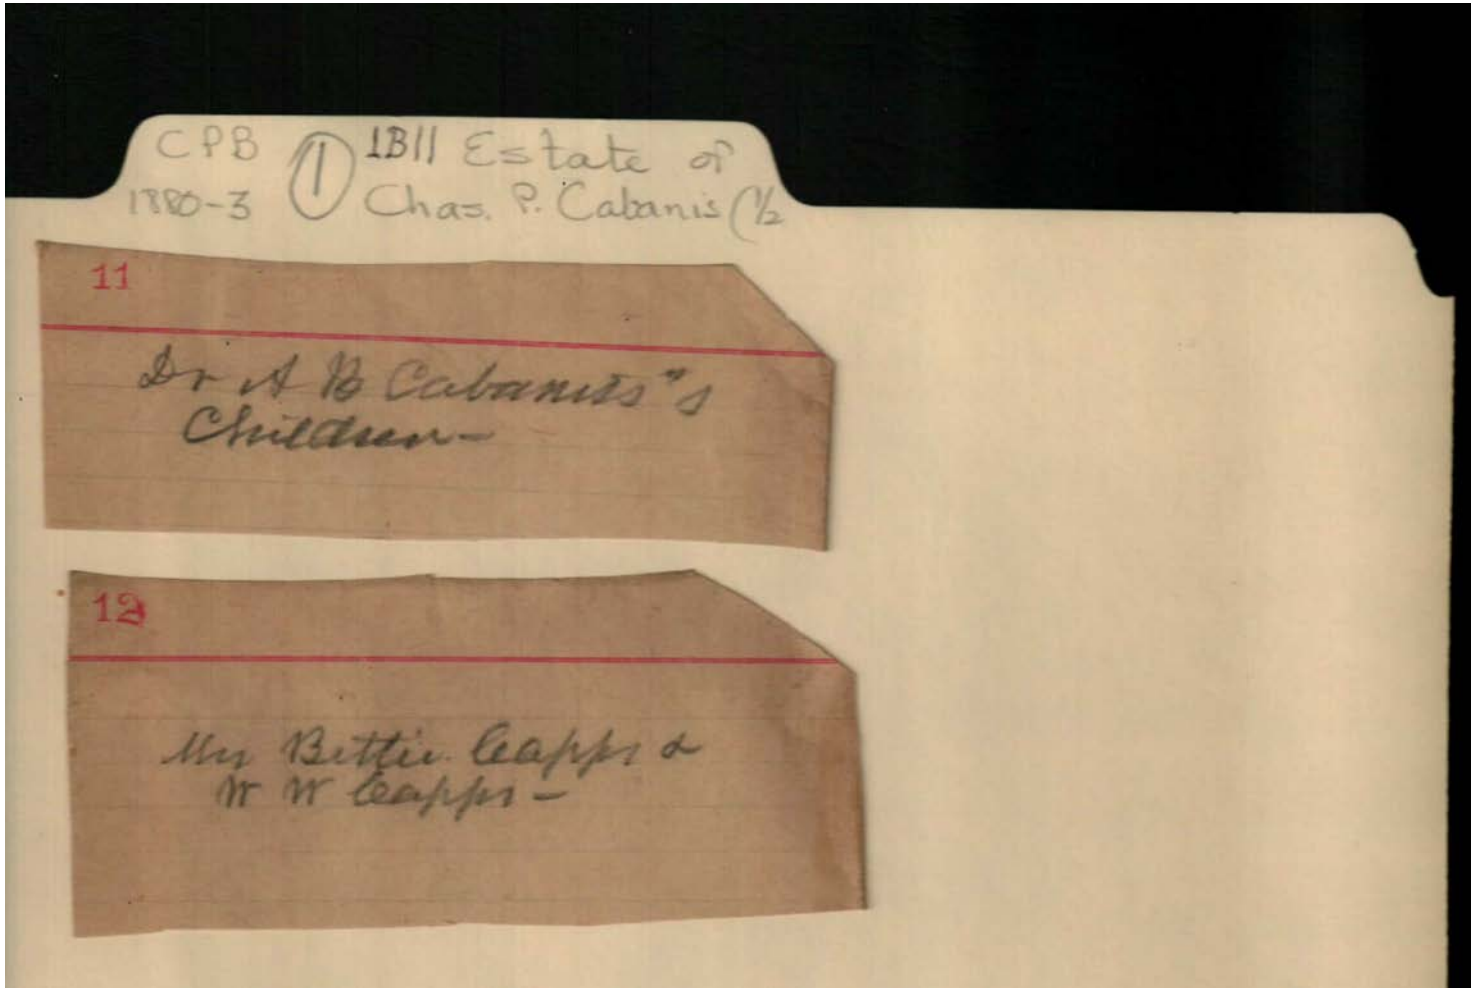 CPB ① 1B11 Estate of
1880-3 Chas. P. Cabanis (1/2
11
Dr A B Cabaniss"s
Children-
12
Mrs Bettie Capps &
W W Capps -